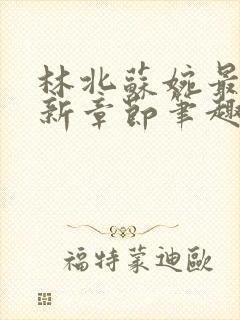 林北蘇婉最
新章節筆趣
福特蒙迪歐